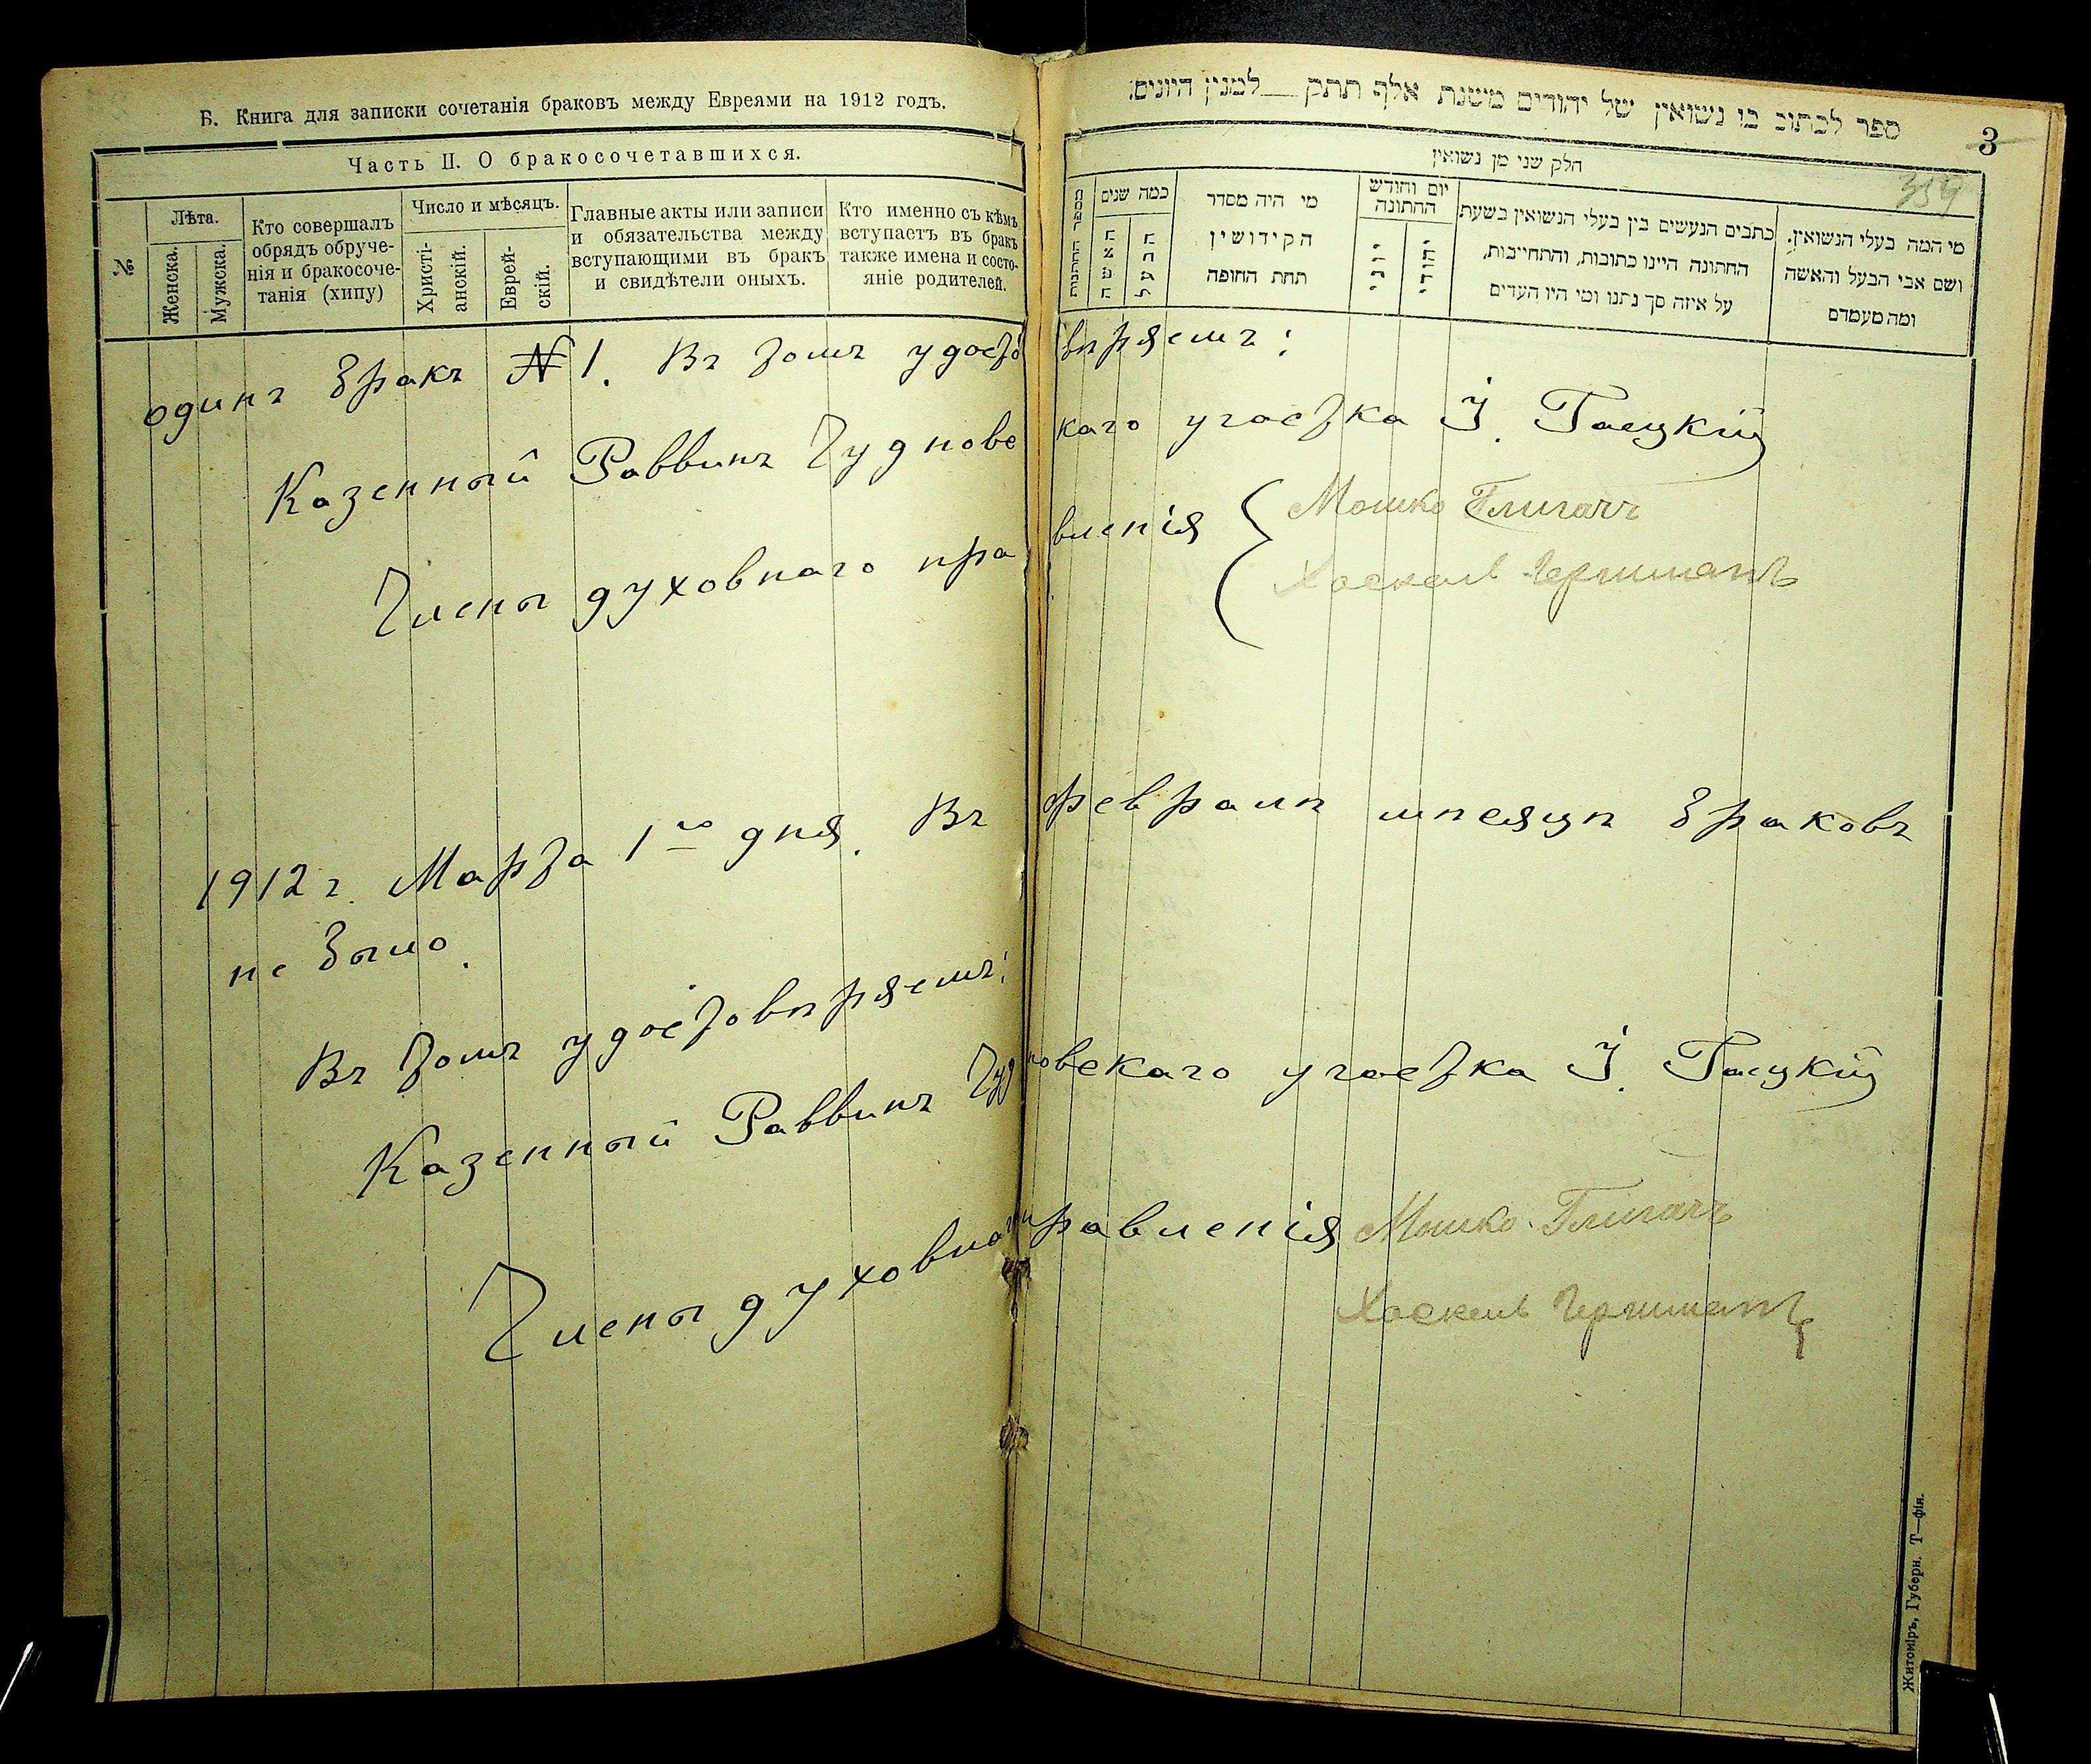 Б. Книга для записки сочетанія браковъ между Евреями на 1912 годъ.
Часть II. О бракосочетавшихся.
№
Лѣта.
Женска.
Мужеска.
Кто совершалъ
обрядъ обруче-
нія и бракосоче-
танія (хипу)
Число и мѣсяцъ.
Христі-
анскій.
Еврей-
скій.
Главные акты или записи
и обязательства между
вступающими въ бракъ
и свидѣтели оныхъ.
Кто именно съ кѣмъ
вступаетъ въ бракъ
также имена и состо-
яніе родителей.
ספר לכתוב בו נשואין של יהודים משנת אלף תתק __ למנין היונים.
3
354
חלק שני מן נשואין
מספר החתונות
כמה שנים
האשה
הבעל
מי היה מסדר
הקידושין
תחת החופה
יום וחודש
החתונה
יוני
יהודי
כתבים הנעשים בין בעלי הנשואין בשעת
החתונה היינו כתובות, והתחייבות,
על איזה סך נתנו ומי היו העדים
מי המה בעלי הנשואין.
ושם אבי הבעל והאשה
ומה מעמדם
одинъ бракъ № 1. Въ томъ удостовѣряемъ:
Казенный Раввинъ Чудновскаго участка І. Гацкій
Члены духовнаго правленія { Мошко Глигачъ
Хаскель Чершманъ
1912 г. Марта 1го дня. Въ февралѣ мѣсяцѣ браковъ
не было.
Въ томъ удостовѣряемъ:
Казенный Раввинъ Чудновскаго участка І. Гацкій
Члены духовнаго правленія Мошко Глигачъ
Хаскель Чершманъ
Житоміръ, Губерн. Т—фія.